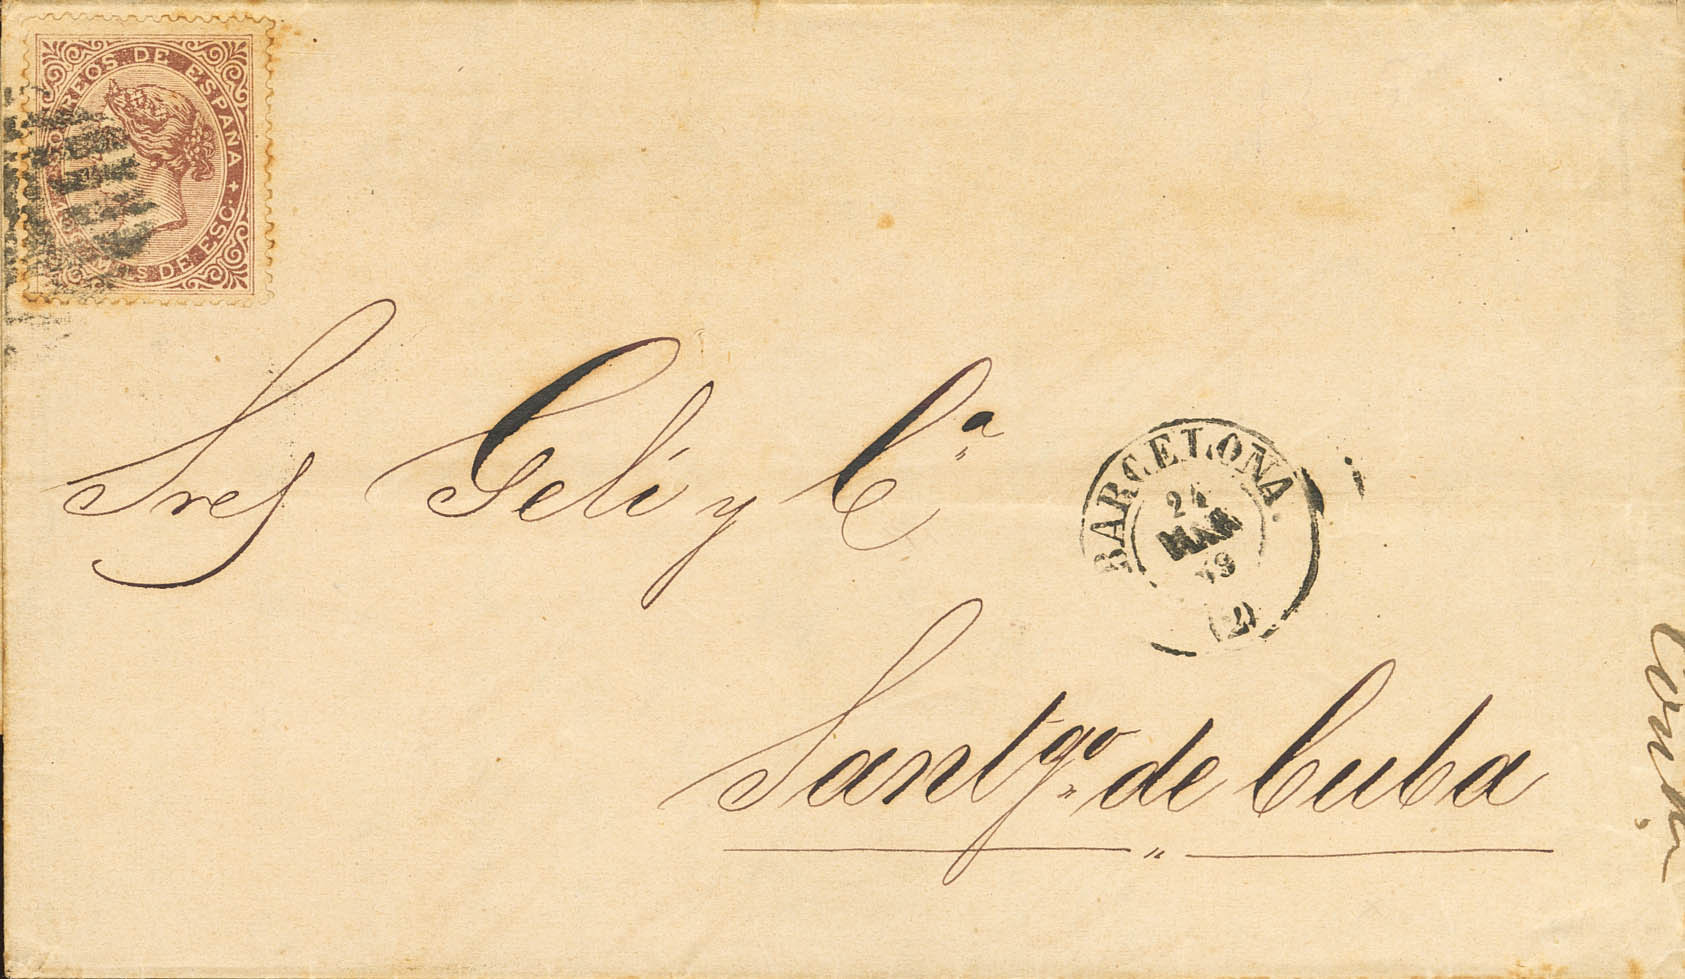 CORREOS DE ESPAÑA
DE ESC.
Sres Geli y Cª
BARCELONA.
24
MAR
69
(2)
Santgo. de Cuba